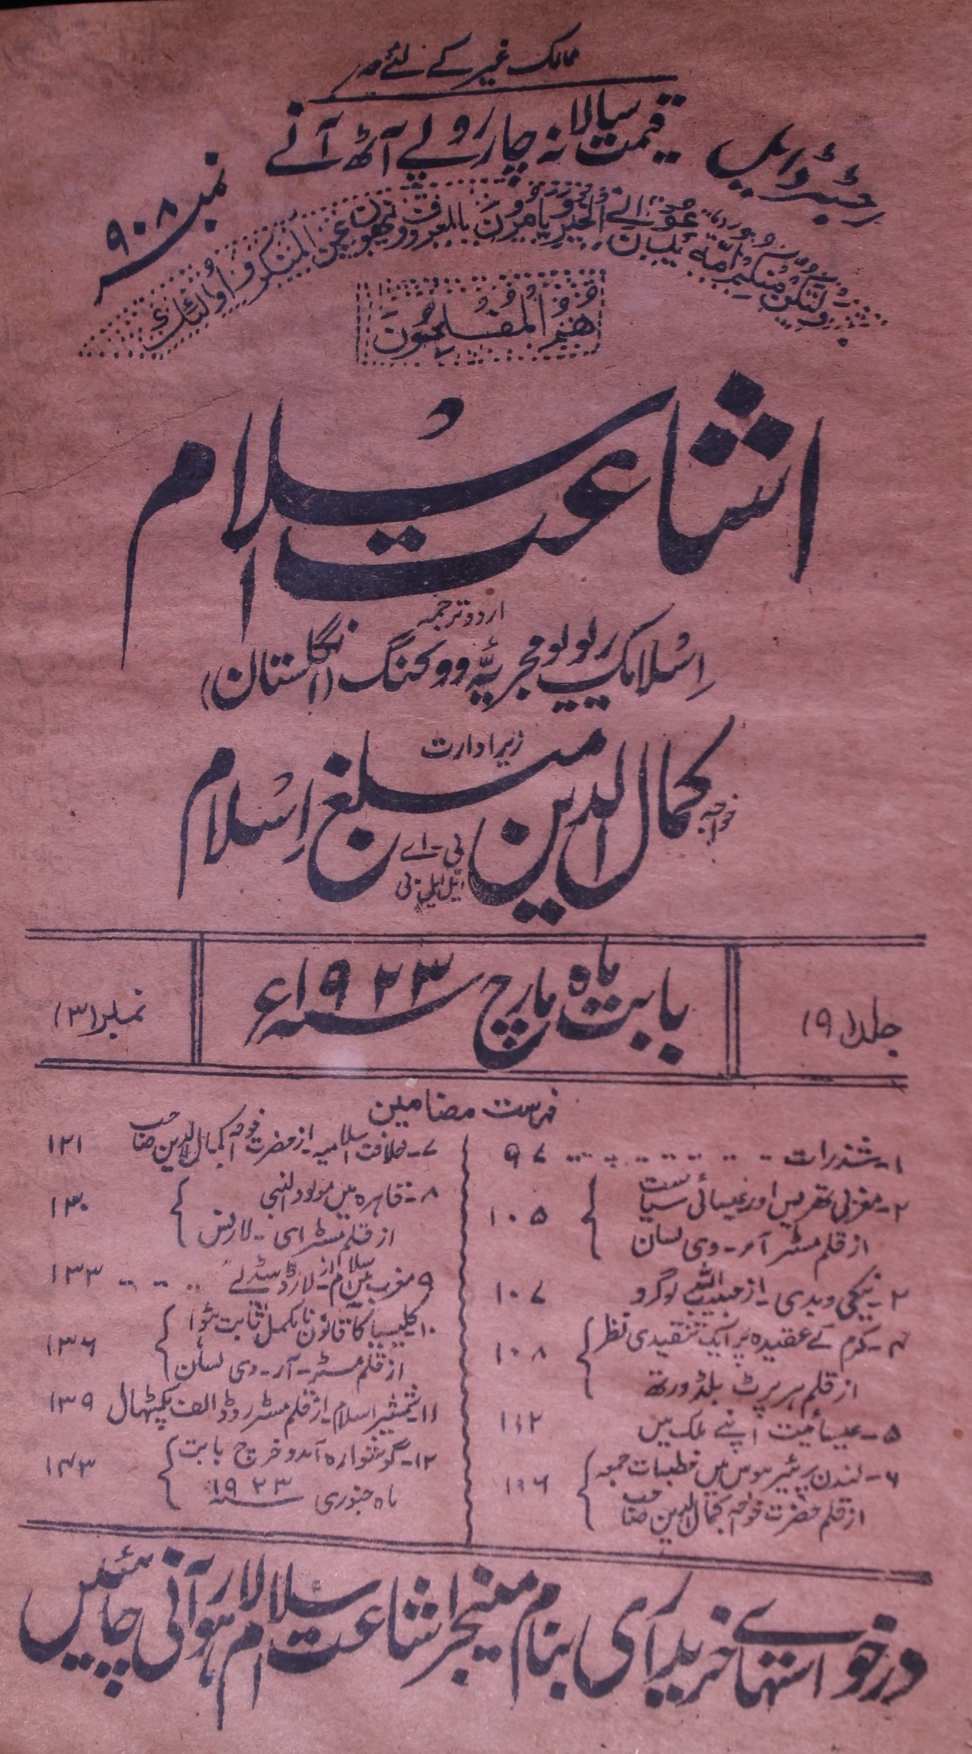 ممالک غیر کے لئے صہ
قیمت سالانہ چار روپے آٹھ آنے
رجسٹرڈ ایل
نمبر ۹۰۸
ولتکن منکم امۃ یدعون الی الخیر ویامرون بالمعروف وینھون عن المنکر واولئک
ھم المفلحون
اشاعت اسلام
اردو ترجمہ
اسلامک ریویو مجریہ ووکنگ (انگلستان)
زیر ادارت
خواجہ کمال الدین بی-اے ایل ایل بی مبلغ اسلام
جلد (۹)
بابت ماہ مارچ سنہ ۱۹۲۳ء
نمبر (۳)
فہرست مضامین
۱-شذرات ۹۷
۲-مغربی تھریس اور عیسائی سیاست
از قلم مسٹر آر-وی لسان ۱۰۵
۳-نیکی و بدی-از حبیب اللہ لوگرو ۱۰۷
۴-کرم کے عقیدہ پر ایک تنقیدی نظر
از قلم ہربرٹ بلڈورتھ ۱۰۸
۵-عیسائیت اپنے ملک میں ۱۱۲
۶-لندن پریئر ہوس میں خطبات جمعہ
از قلم حضرت خواجہ کمال الدین صاحب ۱۱۶
۷-خلافت اسلامیہ-از حضرت خواجہ کمال الدین صاحب ۱۲۱
۸-قاہرہ میں مولود النبی
از قلم مسٹر ای-لارنس ۱۳۰
۹ مغرب میں اسلام-از لارڈ ہیڈلے ۱۳۳
۱۰-کلیسیا کا قانون نامکمل ثابت ہوا
از قلم مسٹر-آر-وی لسان ۱۳۶
۱۱-شمشیر اسلام-از قلم مسٹر رڈولف پکٹھال ۱۳۹
۱۲-گوشوارہ آمد و خرچ بابت
ماہ جنوری سنہ ۱۹۲۳ ۱۴۳
درخواستہائے خریداری بنام مینیجر اشاعت اسلام لاہور آنی چاہئیں